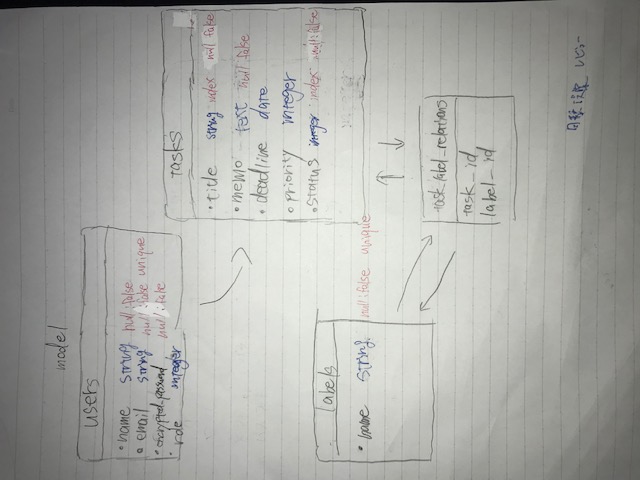 model
users
・name string null:false
・email string null:false unique
・encrypted_password null:false
・role integer
tasks
・title string index null false
・memo text null false
・deadline date
・priority integer
・status integer index null:false
labels
・name string null:false unique
task_label_relations
task_id
label_id
レビュー